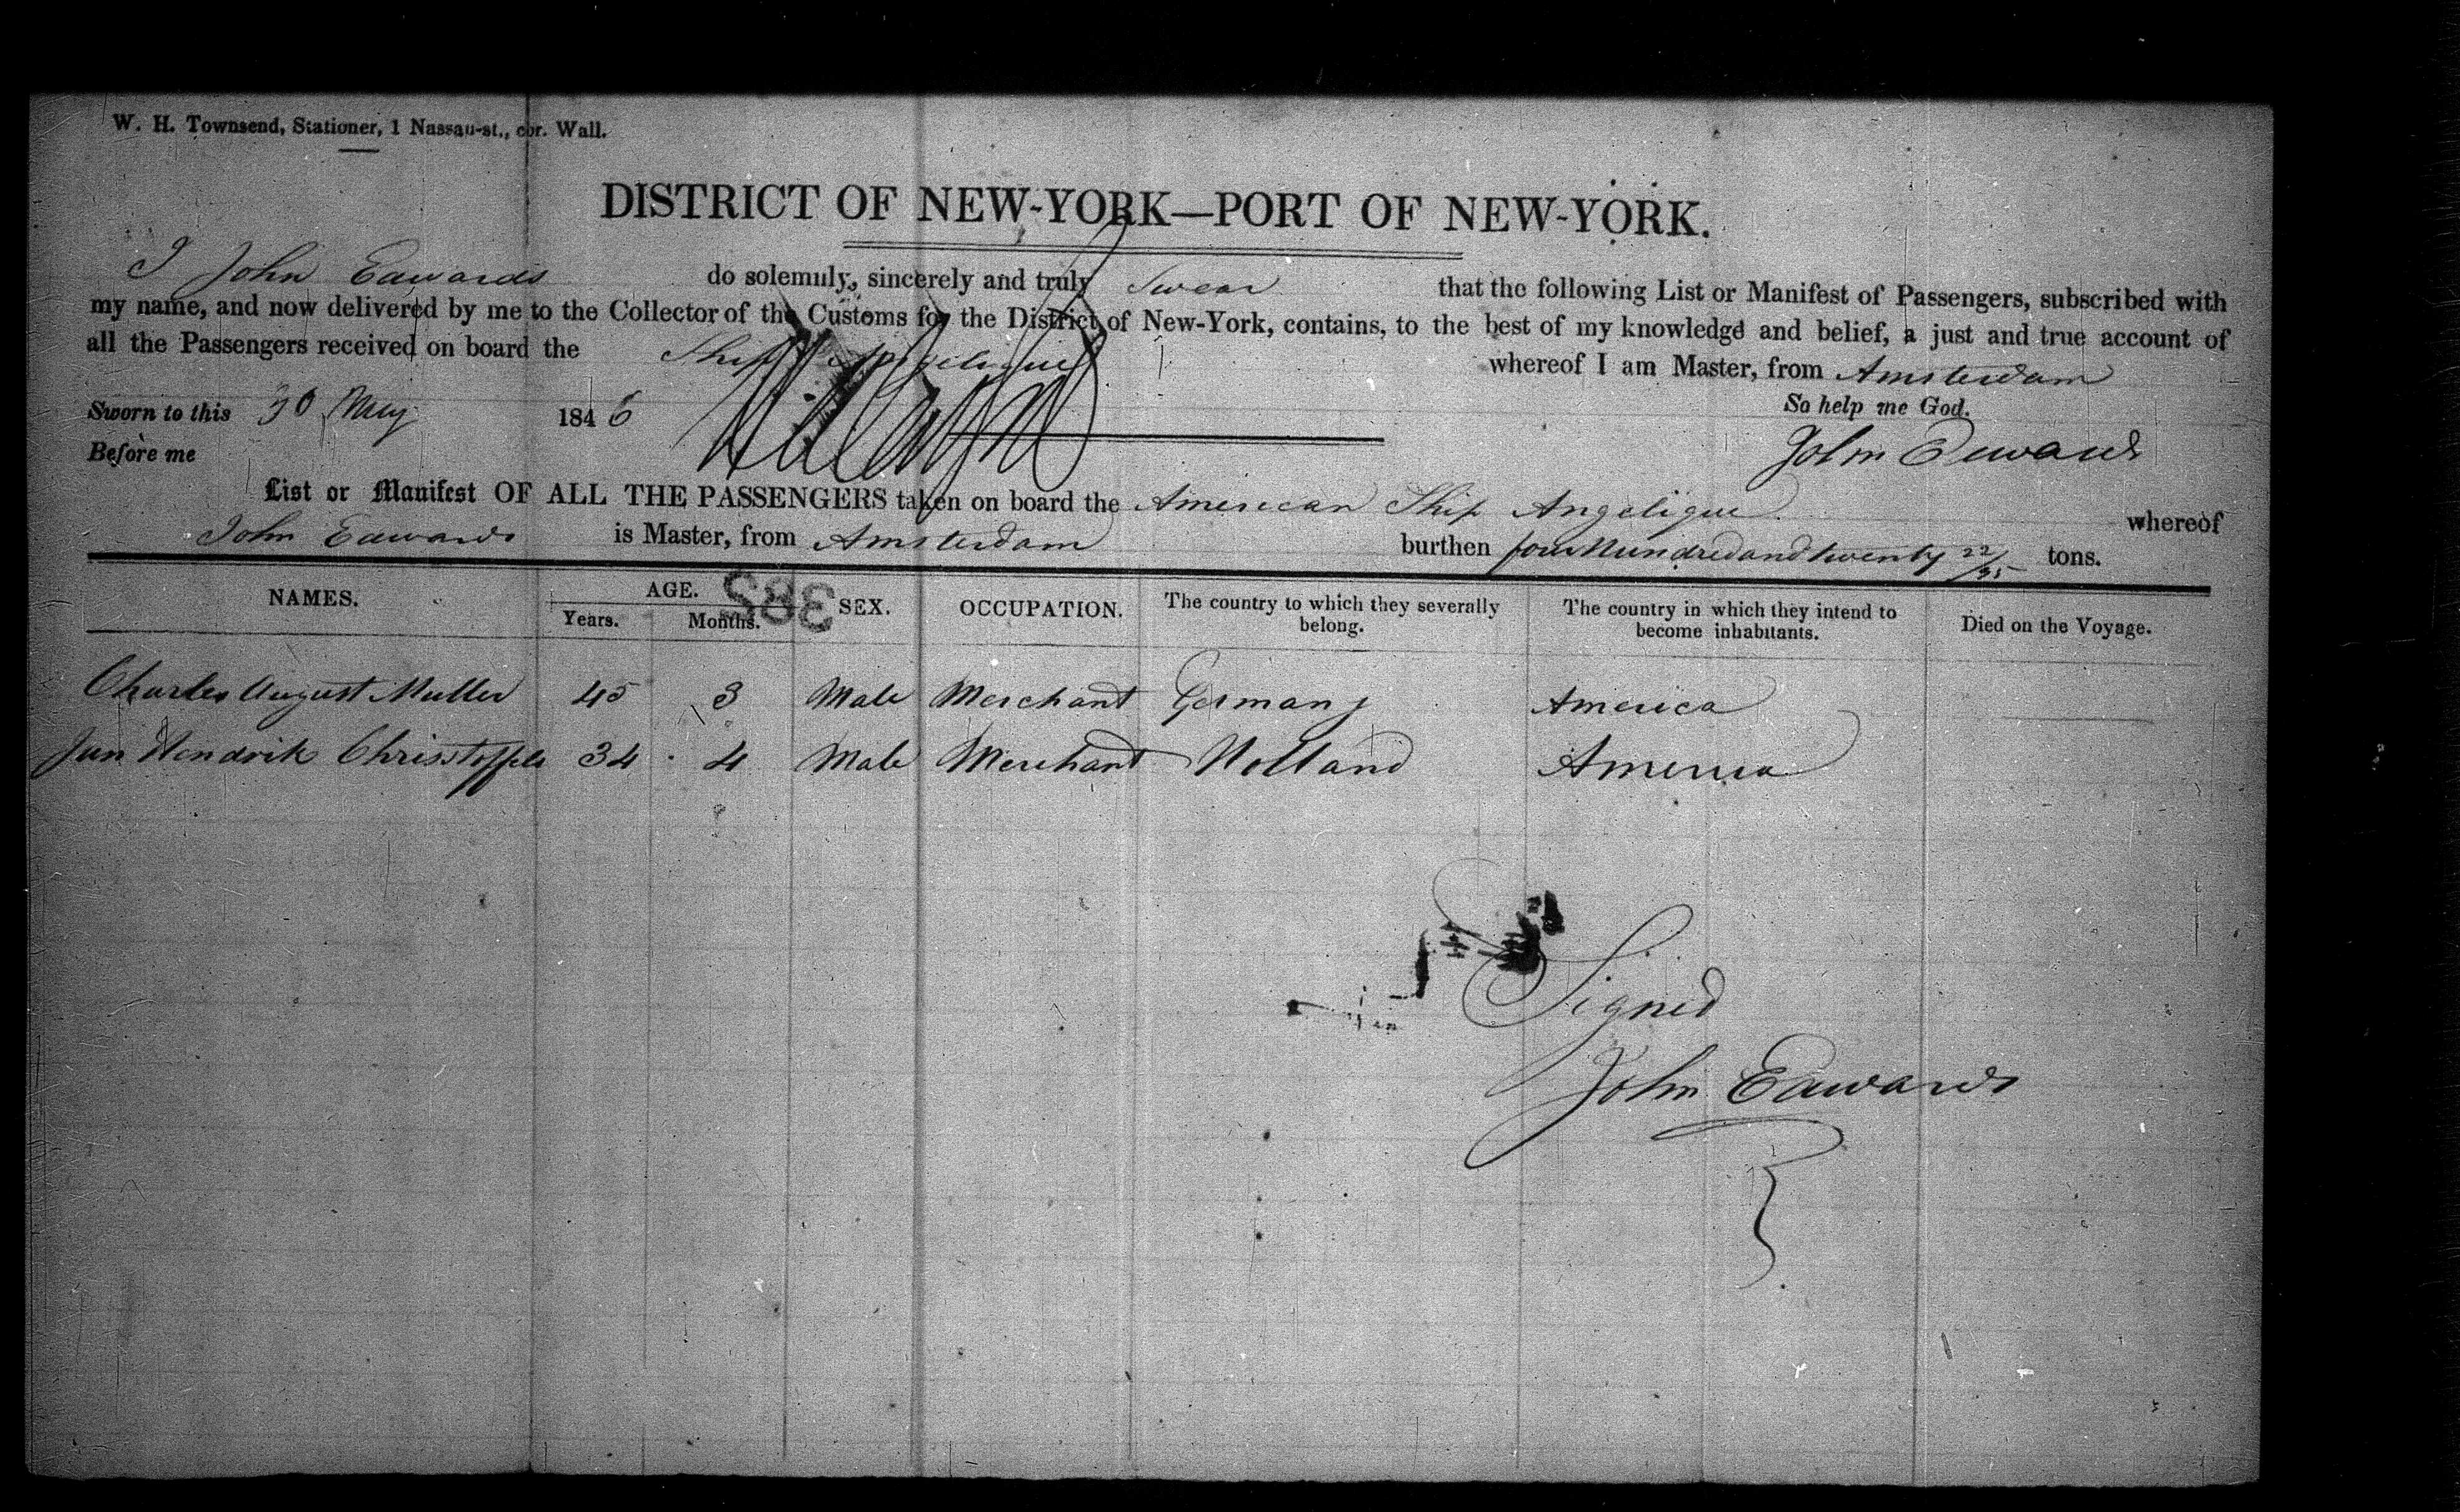 W. H. Townsend, Stationer, 1 Nassau-st., cor. Wall.
DISTRICT OF NEW-YORK—PORT OF NEW-YORK.
I John Edwards do solemnly, sincerely and truly swear that the following List or Manifest of Passengers, subscribed with
my name, and now delivered by me to the Collector of the Customs for the District of New-York, contains, to the best of my knowledge and belief, a just and true account of
all the Passengers received on board the Ship Angelique whereof I am Master, from Amsterdam
So help me God.
Sworn to this 30 May 1846
John Edwards
Before me
List or Manifest OF ALL THE PASSENGERS taken on board the American Ship Angelique whereof
John Edwards is Master, from Amsterdam burthen four Hundred and twenty 22/95 tons.
385
NAMES. AGE. SEX. OCCUPATION. The country to which they severally belong. The country in which they intend to become inhabitants. Died on the Voyage.
Years. Months.
Charles August Muller 45 3 Male Merchant Germany America
Jan Hendrik Christoffels 34 4 Male Merchant Holland America
Signed
John Edwards